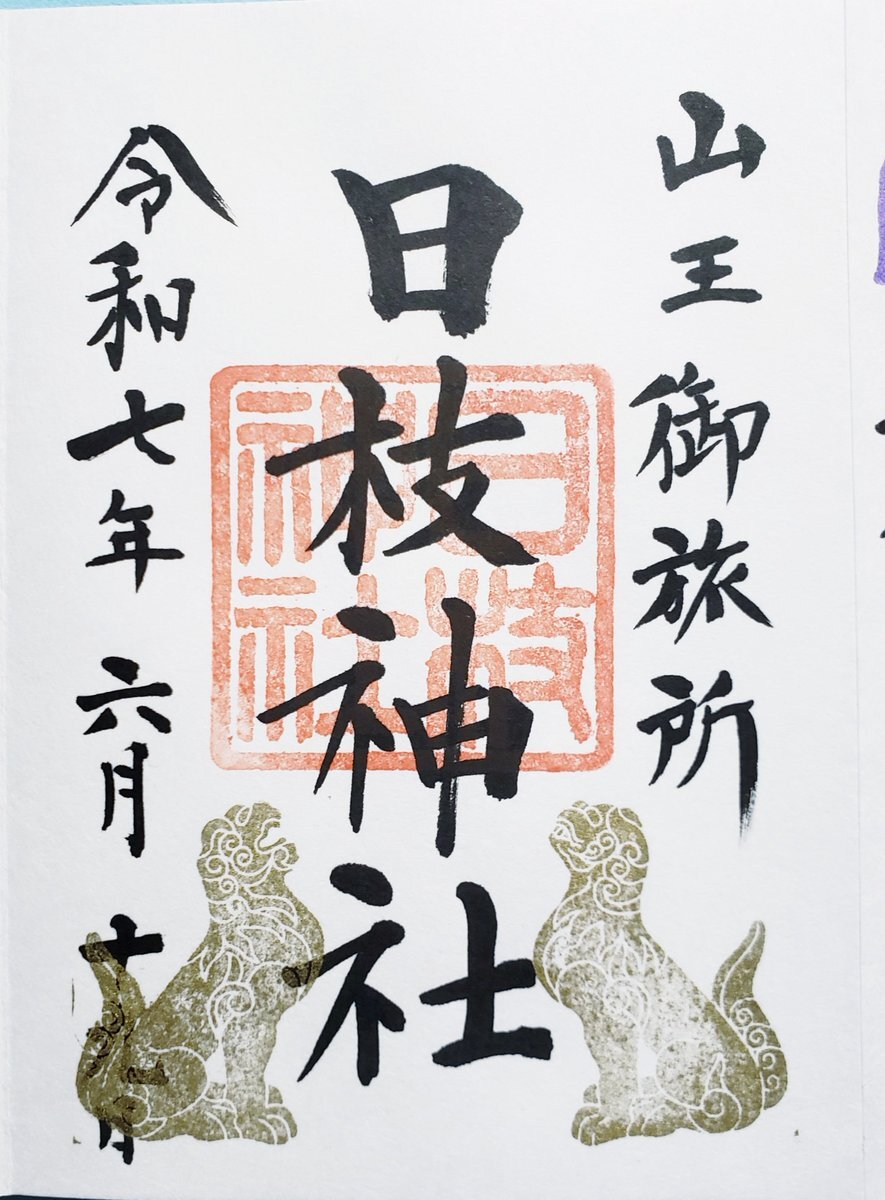 山王御旅所
日枝神社
日枝神社
令和七年 六月 十